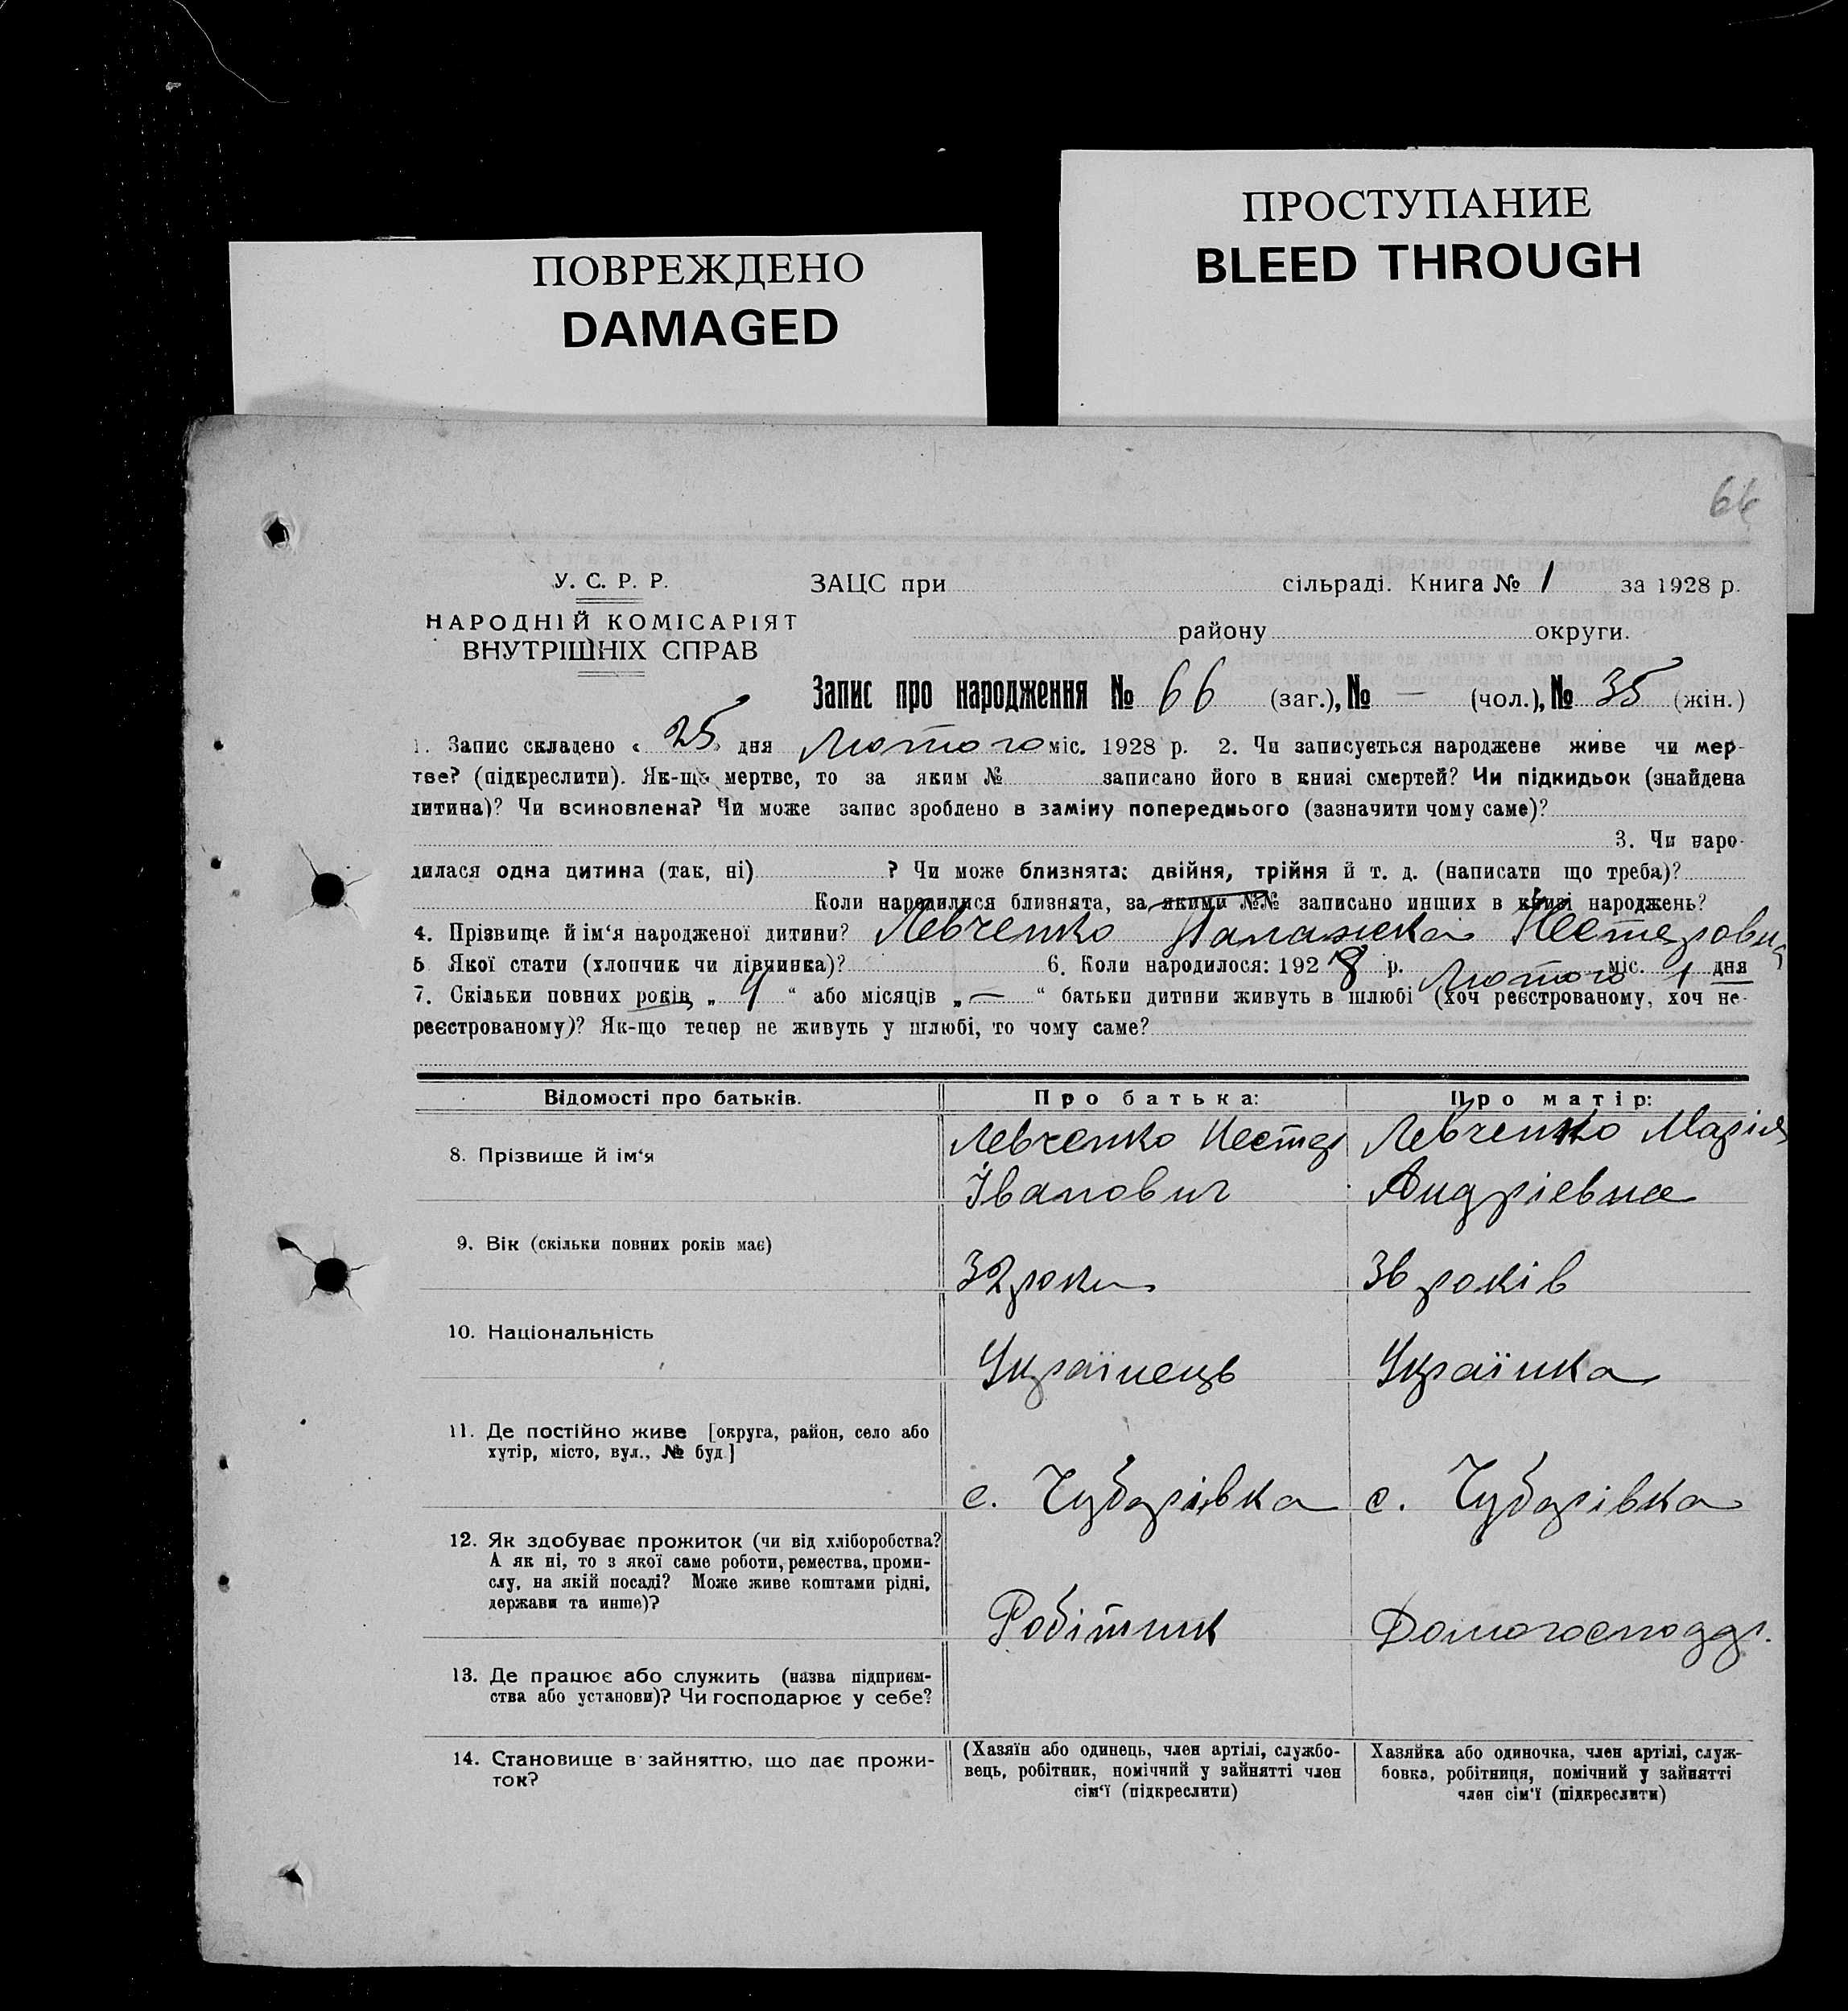 ПРОСТУПАНИЕ
BLEED THROUGH
ПОВРЕЖДЕНО
DAMAGED
66
У. С. Р. Р.
НАРОДНІЙ КОМІСАРІЯТ
ВНУТРІШНІХ СПРАВ
ЗАЦС при сільраді. Книга № 1 за 1928 р.
району округи.
Запис про народження № 66 (заг.), № — (чол.), № 35 (жін.)
1. Запис складено « 25 » дня Лютого міс. 1928 р. 2. Чи записується народжене живе чи мер-
тве? (підкреслити). Як-що мертве, то за яким № записано його в книзі смертей? Чи підкидьок (знайдена
дитина)? Чи всиновлена? Чи може запис зроблено в заміну попереднього (зазначити чому саме)?
3. Чи наро-
дилася одна дитина (так, ні) ? Чи може близнята: двійня, трійня й т. д. (написати що треба)?
Коли народилися близнята, за якими №№ записано инших в книзі народжень?
4. Прізвище й ім'я народженої дитини? Левченко Палажка Нестеровна
5 Якої стати (хлопчик чи дівчинка)? 6. Коли народилося: 1928 р. Лютого міс. 1 дня
7. Скільки повних років „ “ або місяців „ — “ батьки дитини живуть в шлюбі (хоч реєстрованому, хоч не-
реєстрованому)? Як-що тепер не живуть у шлюбі, то чому саме?
Відомості про батьків. Про батька: Про матір:
8. Прізвище й ім'я
Левченко Нестер
Іванович
Левченко Марія
Андріевна
9. Вік (скільки повних років має)
32 роки
36 років
10. Національність
Українець
Українка
11. Де постійно живе [округа, район, село або
хутір, місто, вул., № буд.]
с. Чубарівка
с. Чубарівка
12. Як здобуває прожиток (чи від хліборобства?
А як ні, то з якої саме роботи, ремества, проми-
слу, на якій посаді? Може живе коштами рідні,
держави та инше)?
Робітник
Домогосподар.
13. Де працює або служить (назва підприєм-
ства або установи)? Чи господарює у себе?
14. Становище в зайняттю, що дає прожи-
ток?
(Хазяїн або одинець, член артілі, службо-
вець, робітник, помічний у зайнятті член
сім'ї (підкреслити)
Хазяйка або одиночка, член артілі, служ-
бовка, робітниця, помічний у зайнятті
член сім'ї (підкреслити)